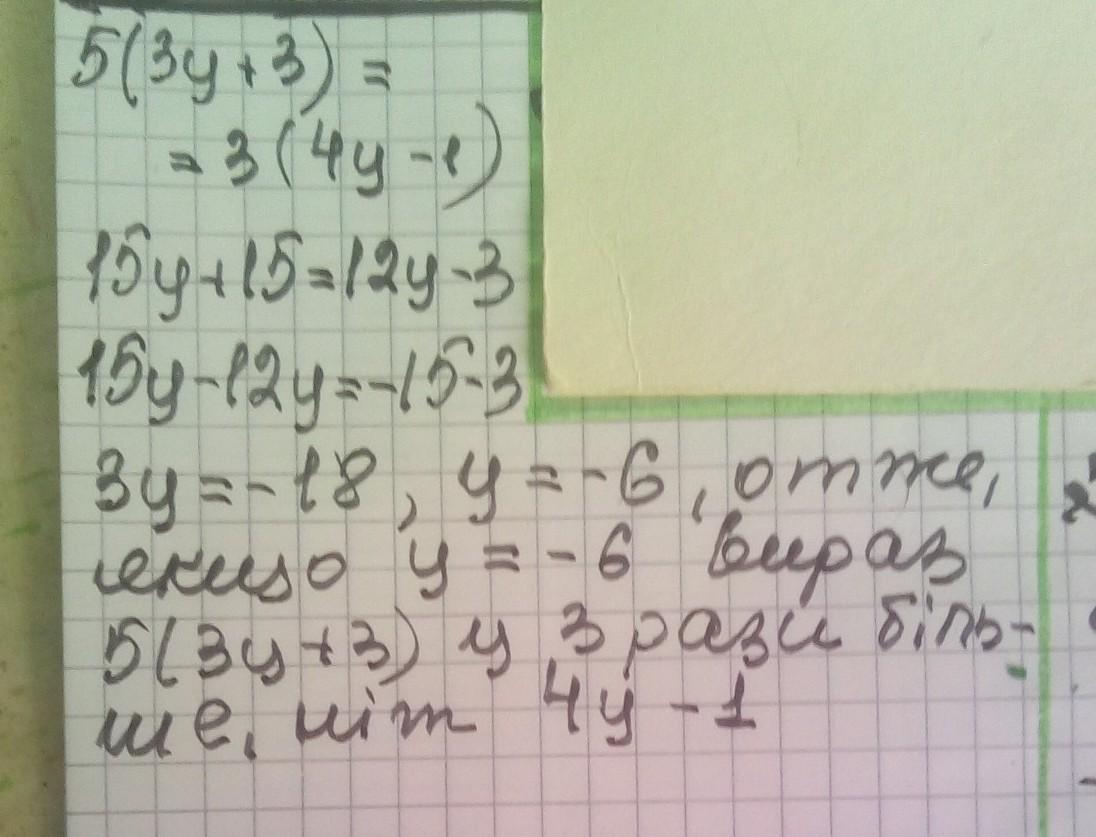 5(3y+3)=
=3(4y-1)
15y+15=12y-3
15y-12y=-15-3
3y=-18, y=-6, отже,
якщо y=-6 вираз
5(3y+3) у 3 рази біль-
ше, ніж 4y-1